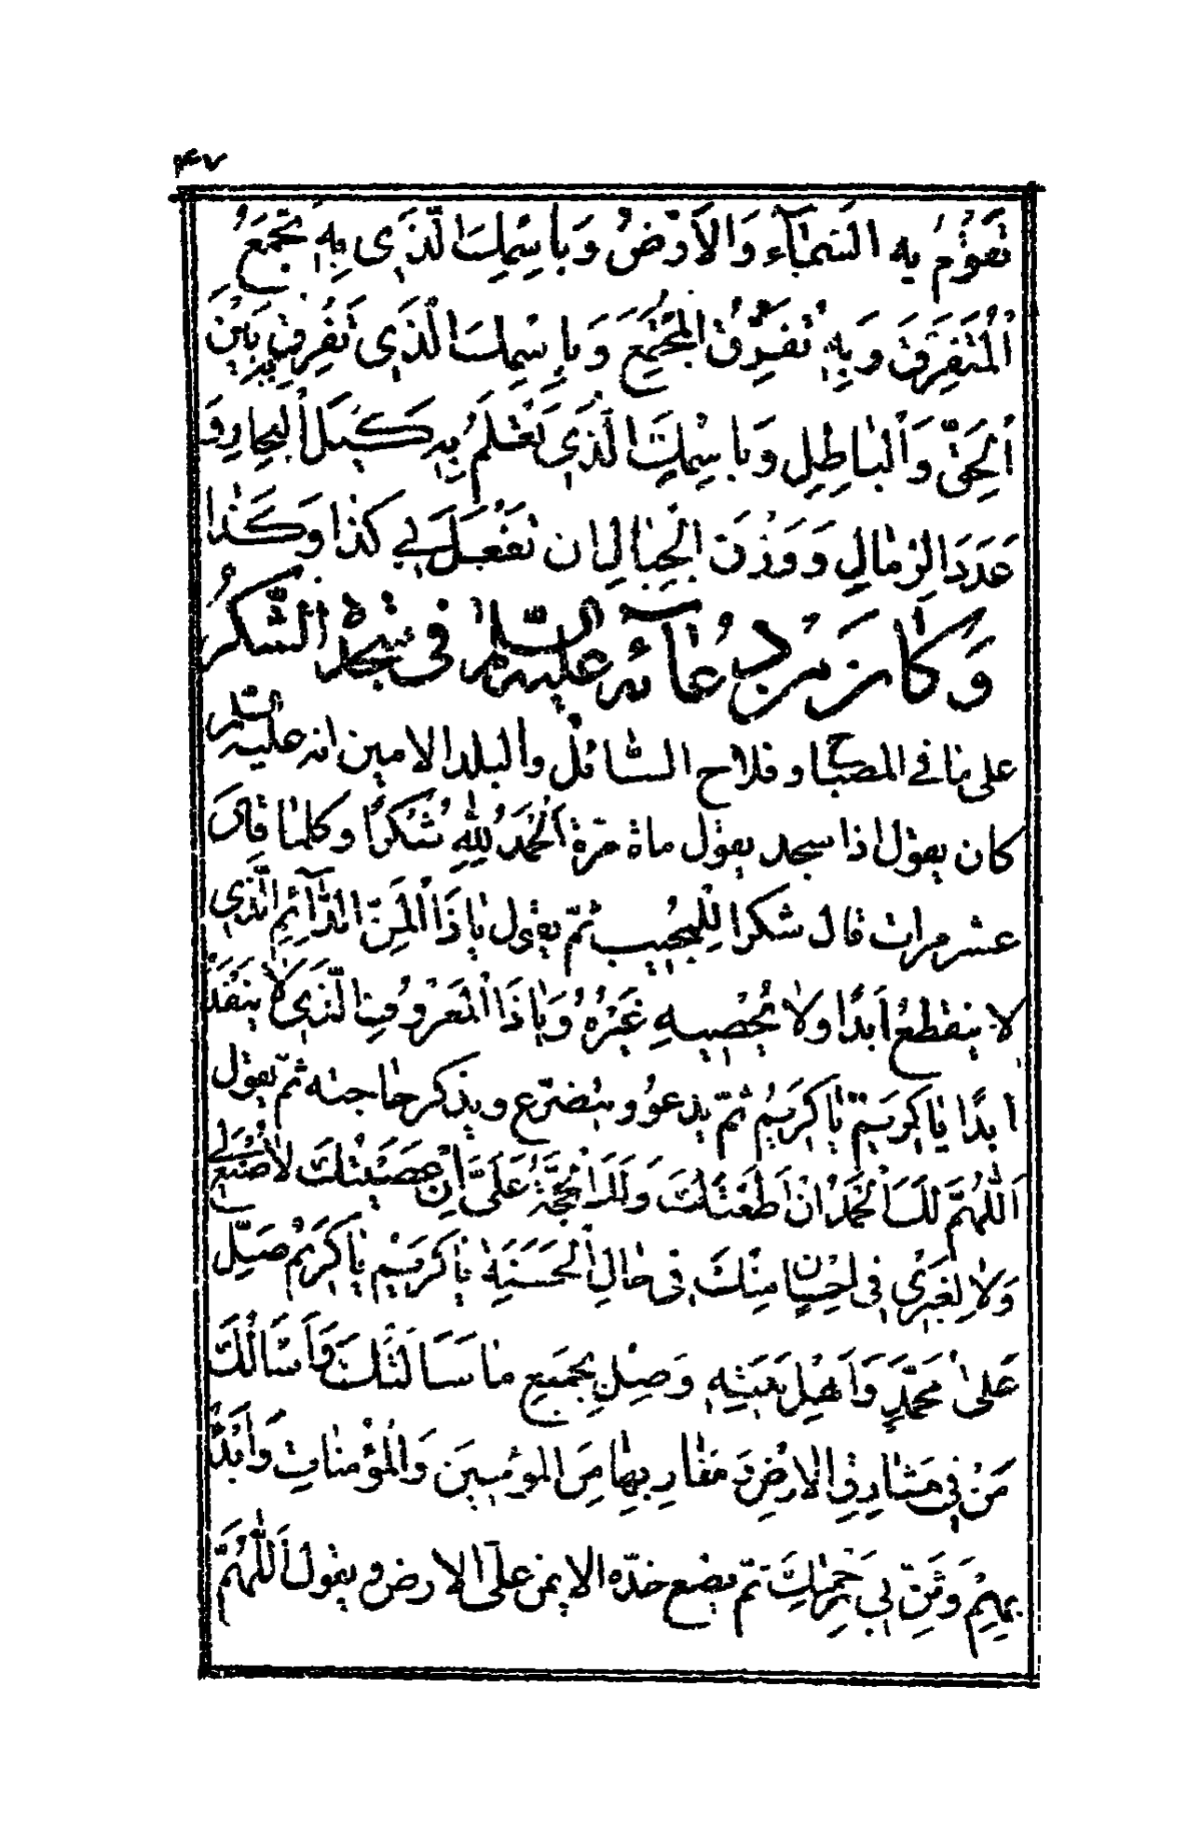 ۴۷
تَقوُمُ بِهِ السَّمٰآءُ وَالْاَرْضُ وَبِاسْمِكَ الَّذي بِهِ تَجْمَعُ
اَلْمُتَفَرِّقَ وَبِهِ تُفَرِّقُ الْمُجْتَمِعَ وَبِاسْمِكَ الَّذي تُفَرِّقُ بِهِ بَيْنَ
اَلْحَقِّ وَالْبٰاطِلِ وَبِاسْمِكَ الَّذي تَعْلَمُ بِهِ كَيْلَ الْبِحارِ وَ
عَدَدَ الرِّمٰالِ وَ وَزْنَ الْجِبٰالِ ان تَفْعَلَ بي كَذٰا وَ كَذٰا
وَ كٰان مِنْ دُعٰآئِهِ عليه السّلام في سجدة الشّكرِ
على ما في المصباح و فلاح السّائل و البلد الامين انه عليه السّلام
كان يقول اذا سجد يقول مأة مرّة اَلْحَمْدُ لِلّٰهِ شُكْراً و كلما قال
عشر مرات قال شكرا لِلْمُجيبِ ثمّ يقول يٰا ذَا الْمَنِّ الدّٰآئِمِ الَّذي
لا يَنْقَطِعُ اَبَداً وَلا يُحْصيهِ غَيْرُهُ وَيٰا ذَا الْمَعْرُوفِ الَّذي لٰا يَنْفَدُ
اَبَداً يٰا كَريمُ يٰا كَريمُ ثمّ يدعو و يتضرّع و يذكر حاجته ثمّ يقول
اَللّٰهُمَّ لَكَ الْحَمْدُ اِنْ اَطَعْتُكَ وَلَكَ الْحُجَّةُ عَلَيَّ اِنْ عَصَيْتُكَ لٰا صُنْعَ لي
وَلٰا لِغَيْري في اِحْسٰانٍ مِنْكَ في حٰالِ الْحَسَنَةِ يٰا كَريمُ يٰا كَريمُ صَلِّ
عَلىٰ مُحَمَّدٍ وَاَهْلِ بَيْتِهِ وَصِلْ بِجَميعِ مٰا سَأَلْتُكَ وَاَسْأَلُكَ
مَنْ في مَشٰارِقِ الْاَرْضِ وَ مَغٰارِبِهٰا مِنَ الْمُؤمِنينَ وَالْمُؤْمِنٰاتِ وَابْدَأْ
بِهِمْ وَثَنِّ بي بِرَحْمَتِكَ ثمّ يضع خدّه الايمن على الارض و يقول اَللّٰهُمَّ